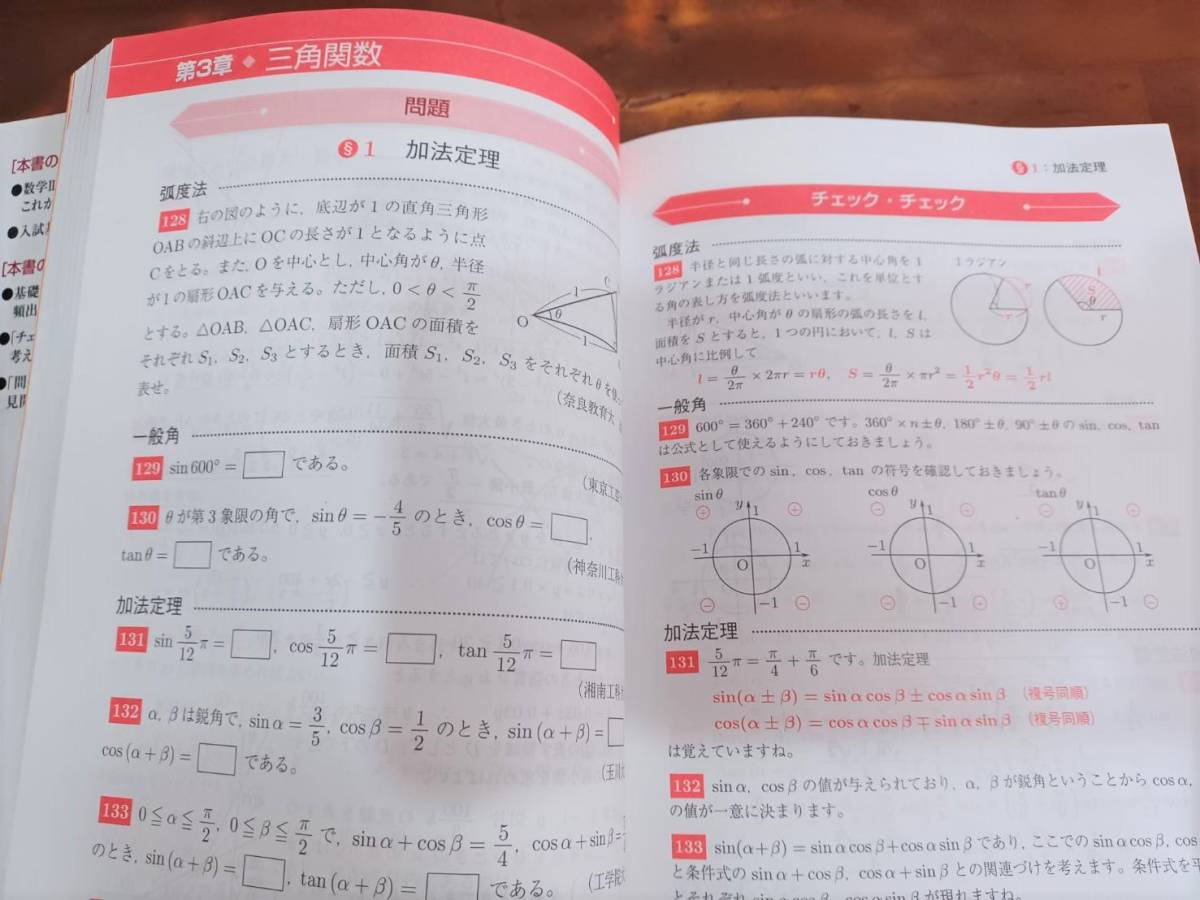 [本書の
●数学II
これか
●入試
[本書の
●基礎
頻出
●「チェ
考え
●「問
見開
第3章◆三角関数
問題
§1 加法定理
弧度法
128 右の図のように，底辺が1の直角三角形
OABの斜辺上にOCの長さが1となるように点
Cをとる。また，Oを中心とし，中心角がθ，半径
が1の扇形OACを与える。ただし，0＜θ＜π/2
とする。△OAB，△OAC，扇形OACの面積を
それぞれS₁，S₂，S₃とするとき，面積S₁，S₂，S₃をそれぞれθを使
表せ。
(奈良教育大
C
1
O θ
1
一般角
129 sin600°=□である。
(東京工
130 θが第3象限の角で，sinθ=-4/5のとき，cosθ=□，
tanθ=□である。
(神奈川工科
加法定理
131 sin 5/12 π=□，cos 5/12 π=□，tan 5/12 π=□
(湘南工科
132 α，βは鋭角で，sinα=3/5，cosβ=1/2のとき，sin(α+β)=□
cos(α+β)=□である。
(玉川
133 0≦α≦π/2，0≦β≦π/2で，sinα+cosβ=5/4，cosα+sinβ=
のとき，sin(α+β)=□，tan(α+β)=□である。
(工学院
§1：加法定理
チェック・チェック
弧度法
128 半径と同じ長さの弧に対する中心角を1
ラジアンまたは1弧度といい，これを単位とす
る角の表し方を弧度法といいます。
半径がr，中心角がθの扇形の弧の長さをl，
面積をSとすると，1つの円において，l，Sは
中心角に比例して
l=θ/2π×2πr=rθ，S=θ/2π×πr²=1/2 r²θ=1/2 rl
1ラジアン
r
r
l
S
θ
r
一般角
129 600°=360°+240°です。360°×n±θ，180°±θ，90°±θのsin，cos，tan
は公式として使えるようにしておきましょう。
130 各象限でのsin，cos，tanの符号を確認しておきましょう。
sinθ y 1 ⊕ ⊕ -1 O 1 x ⊖ -1 ⊖
cosθ y 1 ⊖ ⊕ -1 O 1 x ⊖ -1 ⊕
tanθ y 1 ⊖ ⊕ -1 O 1 x ⊕ -1 ⊖
加法定理
131 5/12 π=π/4+π/6です。加法定理
sin(α±β)=sinαcosβ±cosαsinβ（複号同順）
cos(α±β)=cosαcosβ∓sinαsinβ（複号同順）
は覚えていますね。
132 sinα，cosβの値が与えられており，α，βが鋭角ということからcosα，
の値が一意に決まります。
133 sin(α+β)=sinαcosβ+cosαsinβであり，ここでのsinαcosβ，cos
と条件式のsinα+cosβ，cosα+sinβとの関連づけを考えます。条件式を平
とそれぞれsinαcosβ，cosαsinβが現れますね。